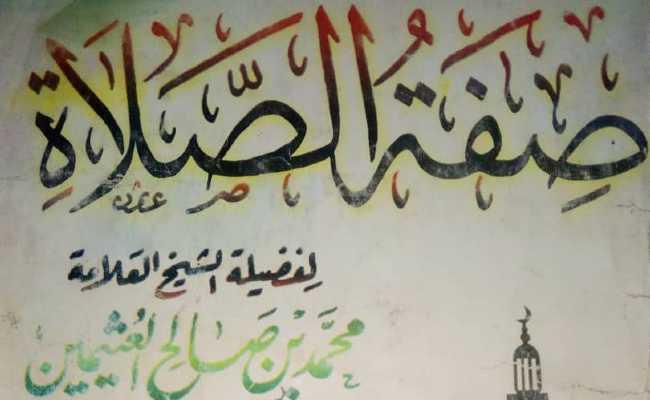 صِفَةُ الصَّلَاةِ
لفضيلة الشيخ العلامة
محمَّد بن صَالح العثيمين